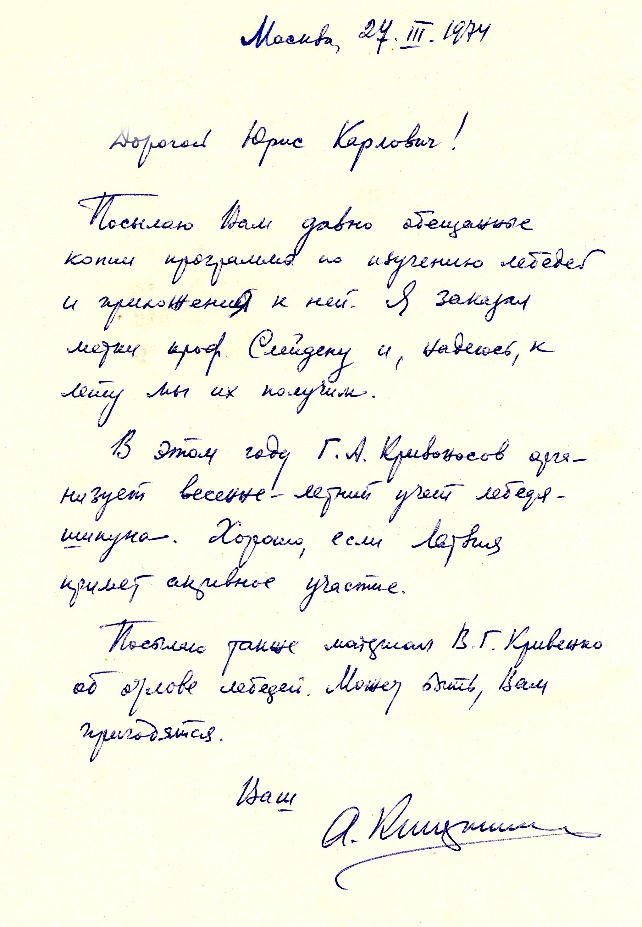 Москва, 27.III.1974
Дорогой Юрис Карлович!
Посылаю Вам давно обещанные
копии программы по изучению лебедей
и приложения к ней. Я заказал
метки проф. Слейдену и, надеюсь, к
лету мы их получим.
В этом году Г.А. Кривоносов орга-
низует весенне-летний учет лебедя-
шипуна. Хорошо, если Латвия
примет активное участие.
Посылаю также материал В.Г. Кривенко
об отлове лебедей. Может быть, Вам
пригодятся.
Ваш
А. Кищинский